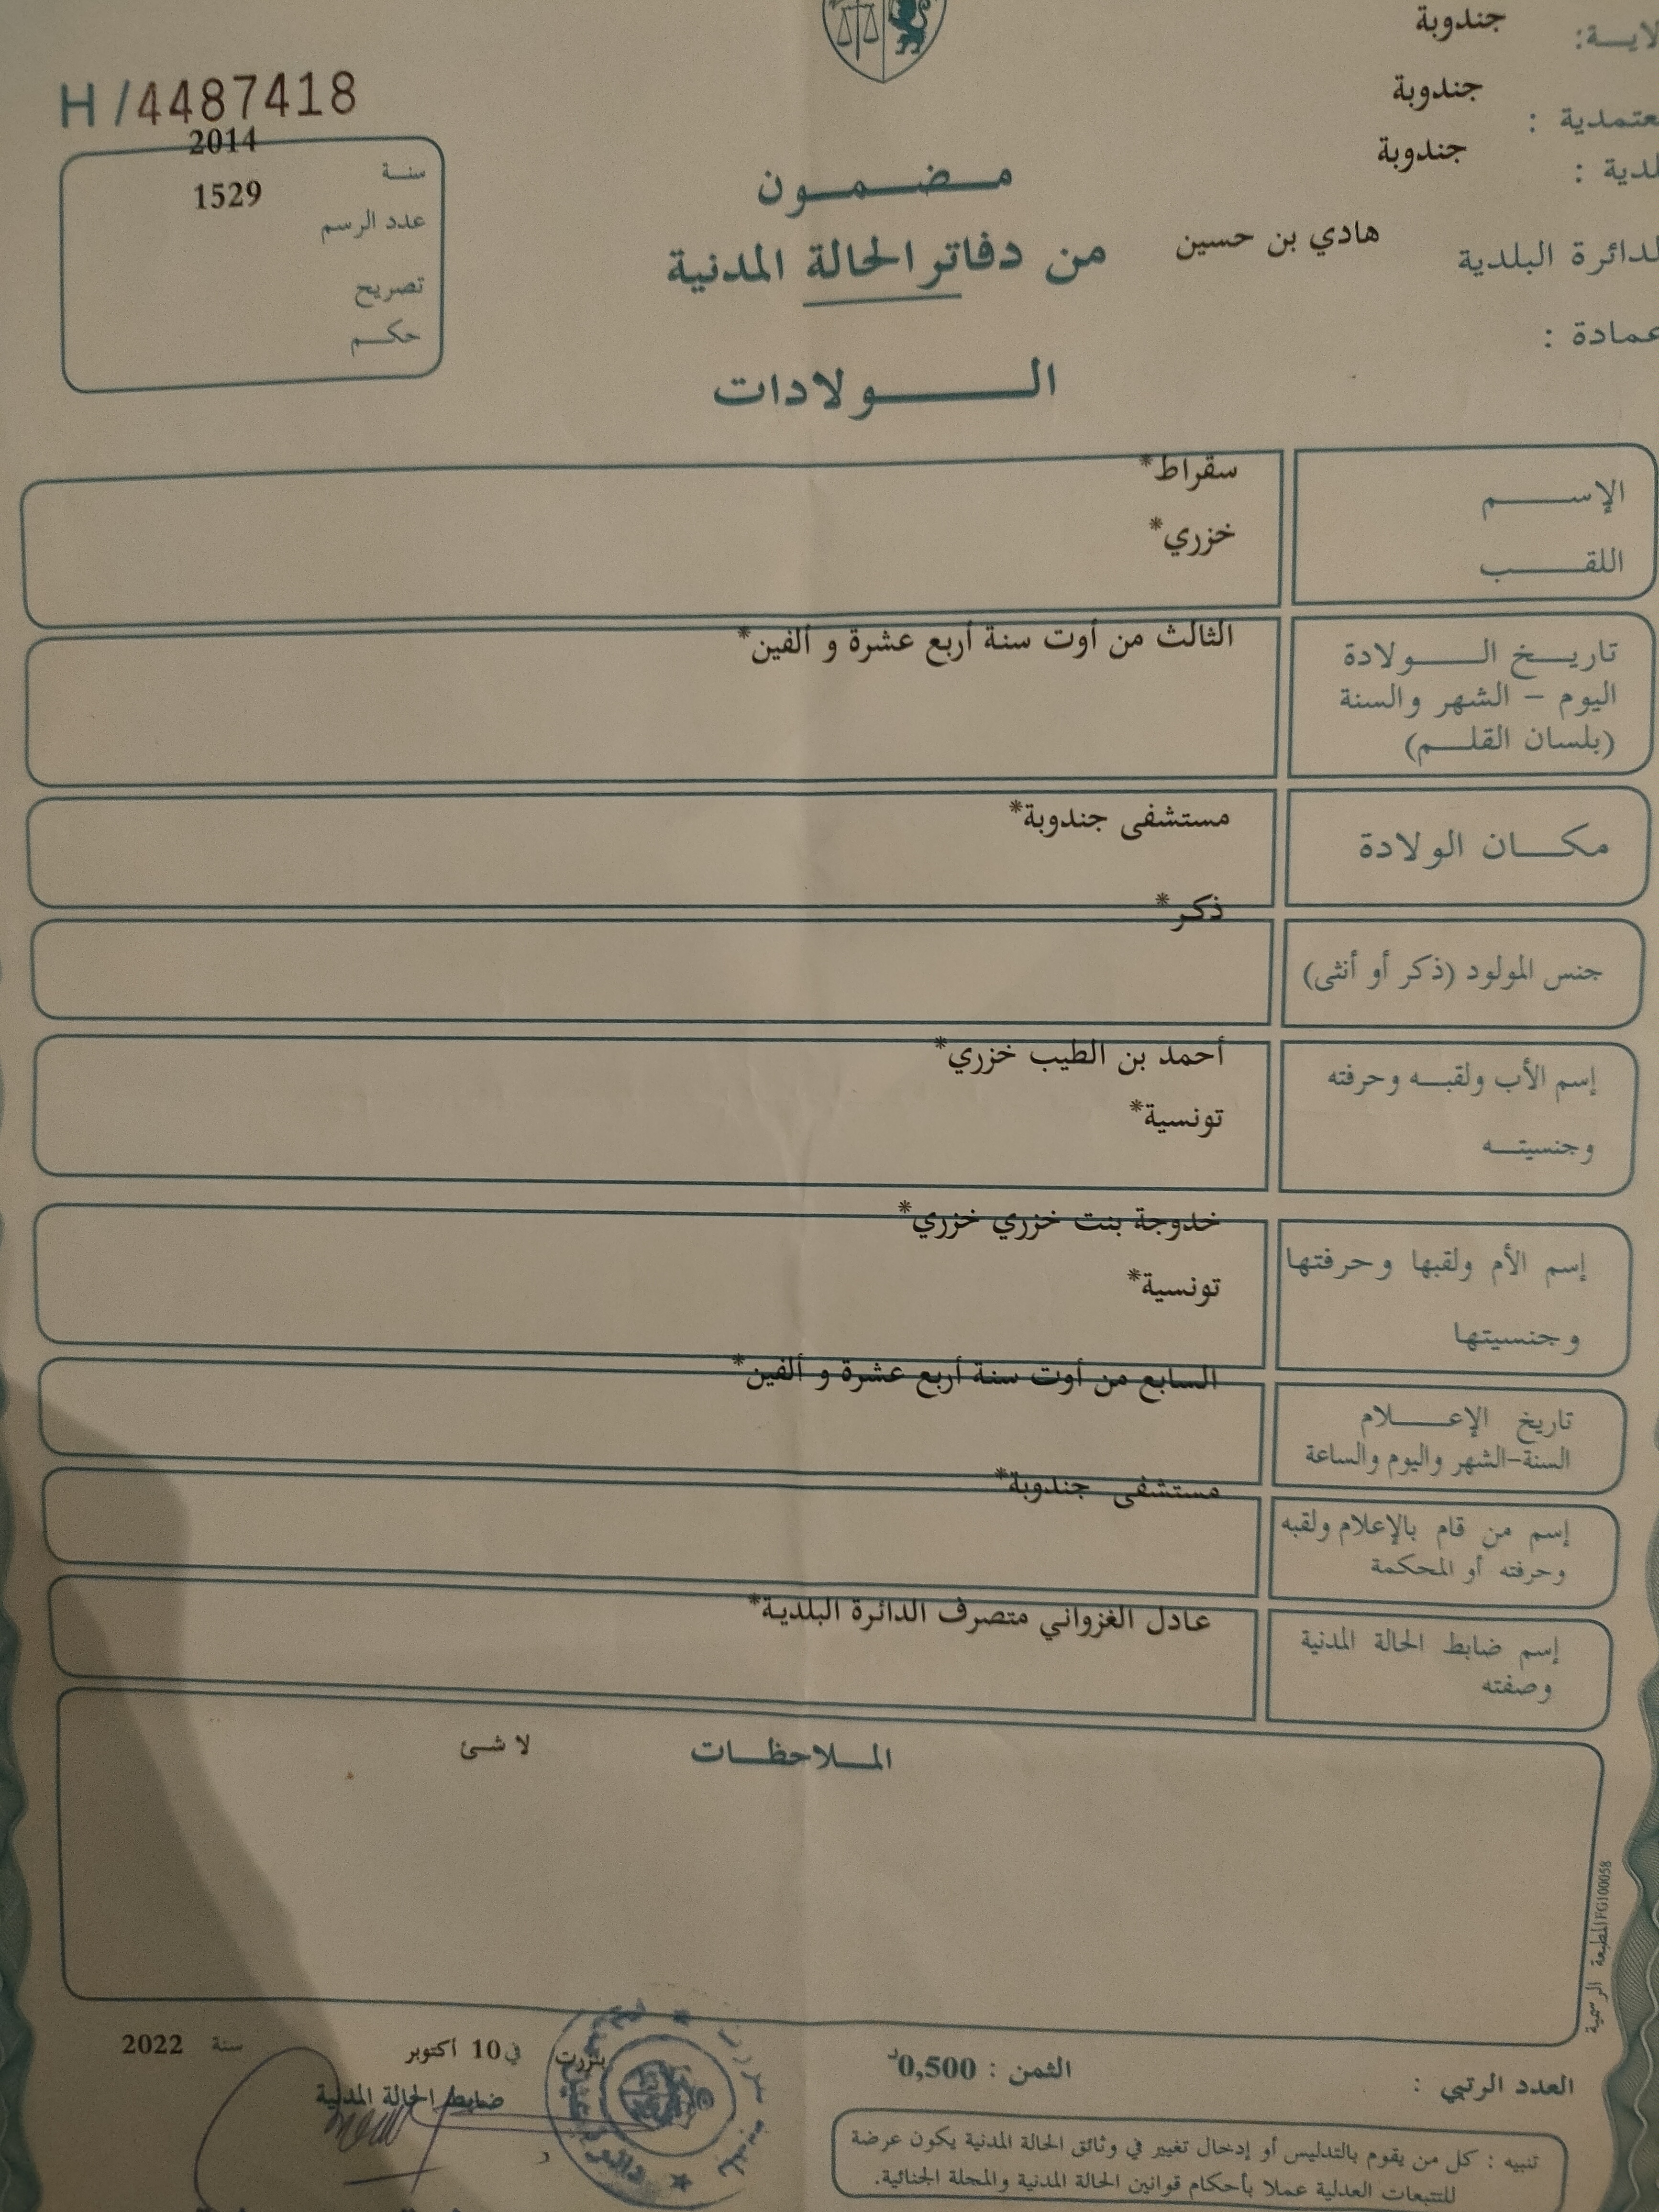 جندوبة
جندوبة
معتمدية :
جندوبة
هادي بن حسين
الدائرة البلدية
عمادة :
H / 4487418
2014
سنة
1529
عدد الرسم
تصريح
حكم
مضمون
من دفاتر الحالة المدنية
الولادات
الإسم
سقراط*
اللقب
خزري*
تاريخ الولادة
اليوم – الشهر والسنة
(بلسان القلم)
الثالث من أوت سنة أربع عشرة و ألفين*
مكان الولادة
مستشفى جندوبة*
جنس المولود (ذكر أو أنثى)
ذكر*
إسم الأب ولقبه وحرفته
وجنسيته
أحمد بن الطيب خزري*
تونسية*
إسم الأم ولقبها وحرفتها
وجنسيتها
خدوجة بنت خزري خزري*
تونسية*
تاريخ الإعلام
السنة-الشهر واليوم والساعة
السابع من أوت سنة أربع عشرة و ألفين*
إسم من قام بالإعلام ولقبه
وحرفته أو المحكمة
مستشفى جندوبة*
إسم ضابط الحالة المدنية
وصفته
عادل الغزواني متصرف الدائرة البلدية*
الملاحظات
لا شئ
المطبعة الرسمية FG100058
العدد الرتبي :
الثمن : 0,500د
بنزرت في 10 اكتوبر سنة 2022
ضابط الحالة المدنية
تنبيه : كل من يقوم بالتدليس أو إدخال تغيير في وثائق الحالة المدنية يكون عرضة
للتتبعات العدلية عملا بأحكام قوانين الحالة المدنية والمجلة الجنائية.